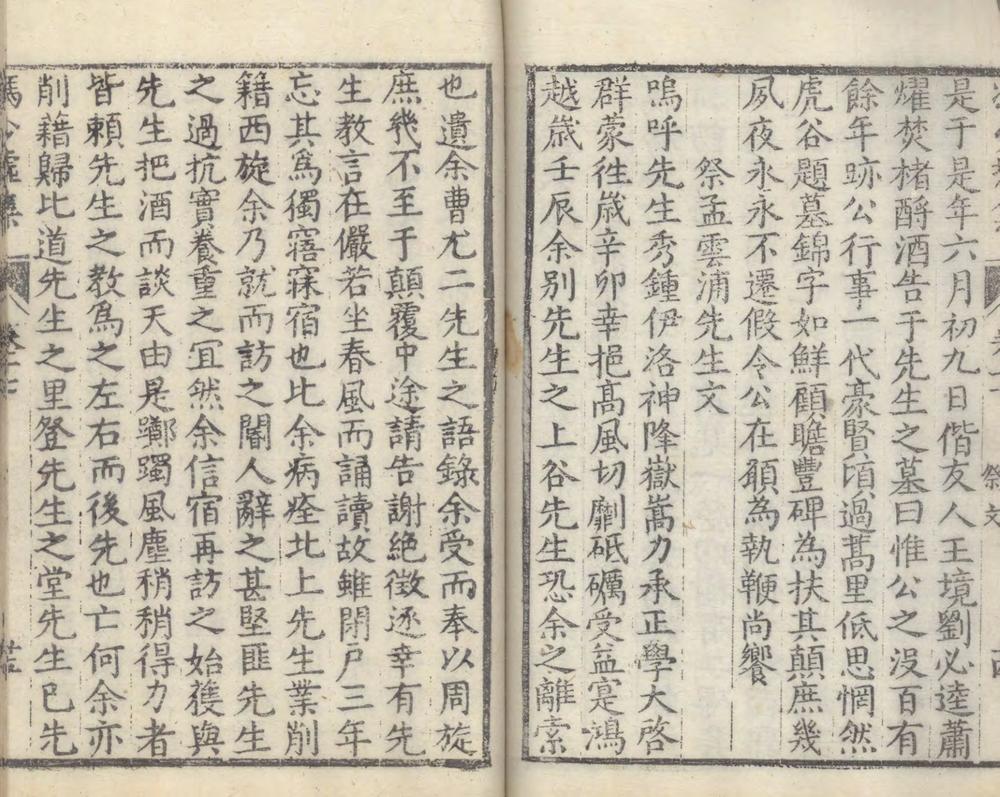 是于是年六月初九日偕友人王境劉必逵蕭
燿焚楮酹酒告于先生之墓曰惟公之没百有
餘年跡公行事一代豪賢頃過蒿里低思惘然
虎谷題墓錦字如鮮顧瞻豐碑為扶其顛庶幾
夙夜永永不遷假令公在願為執鞭尚饗
祭孟雲浦先生文
嗚呼先生秀鍾伊洛神降嶽嵩力承正學大啓
群蒙徃歳辛卯幸挹髙風切劘砥礪受益寔鴻
越歳壬辰余别先生之上谷先生恐余之離索
也遺余曹尤二先生之語錄余受而奉以周旋
庶幾不至于顛覆中途請告謝絶徵逐幸有先
生教言在儼若坐春風而誦讀故雖閉户三年
忘其為獨寤寐宿也比余病痊北上先生業削
籍西旋余乃就而訪之閽人辭之甚堅匪先生
之過抗實養重之冝然余信宿再訪之始獲與
先生把酒而談天由是躑躅風塵稍稍得力者
皆頼先生之教為之左右而後先也亡何余亦
削籍歸比道先生之里登先生之堂先生已先